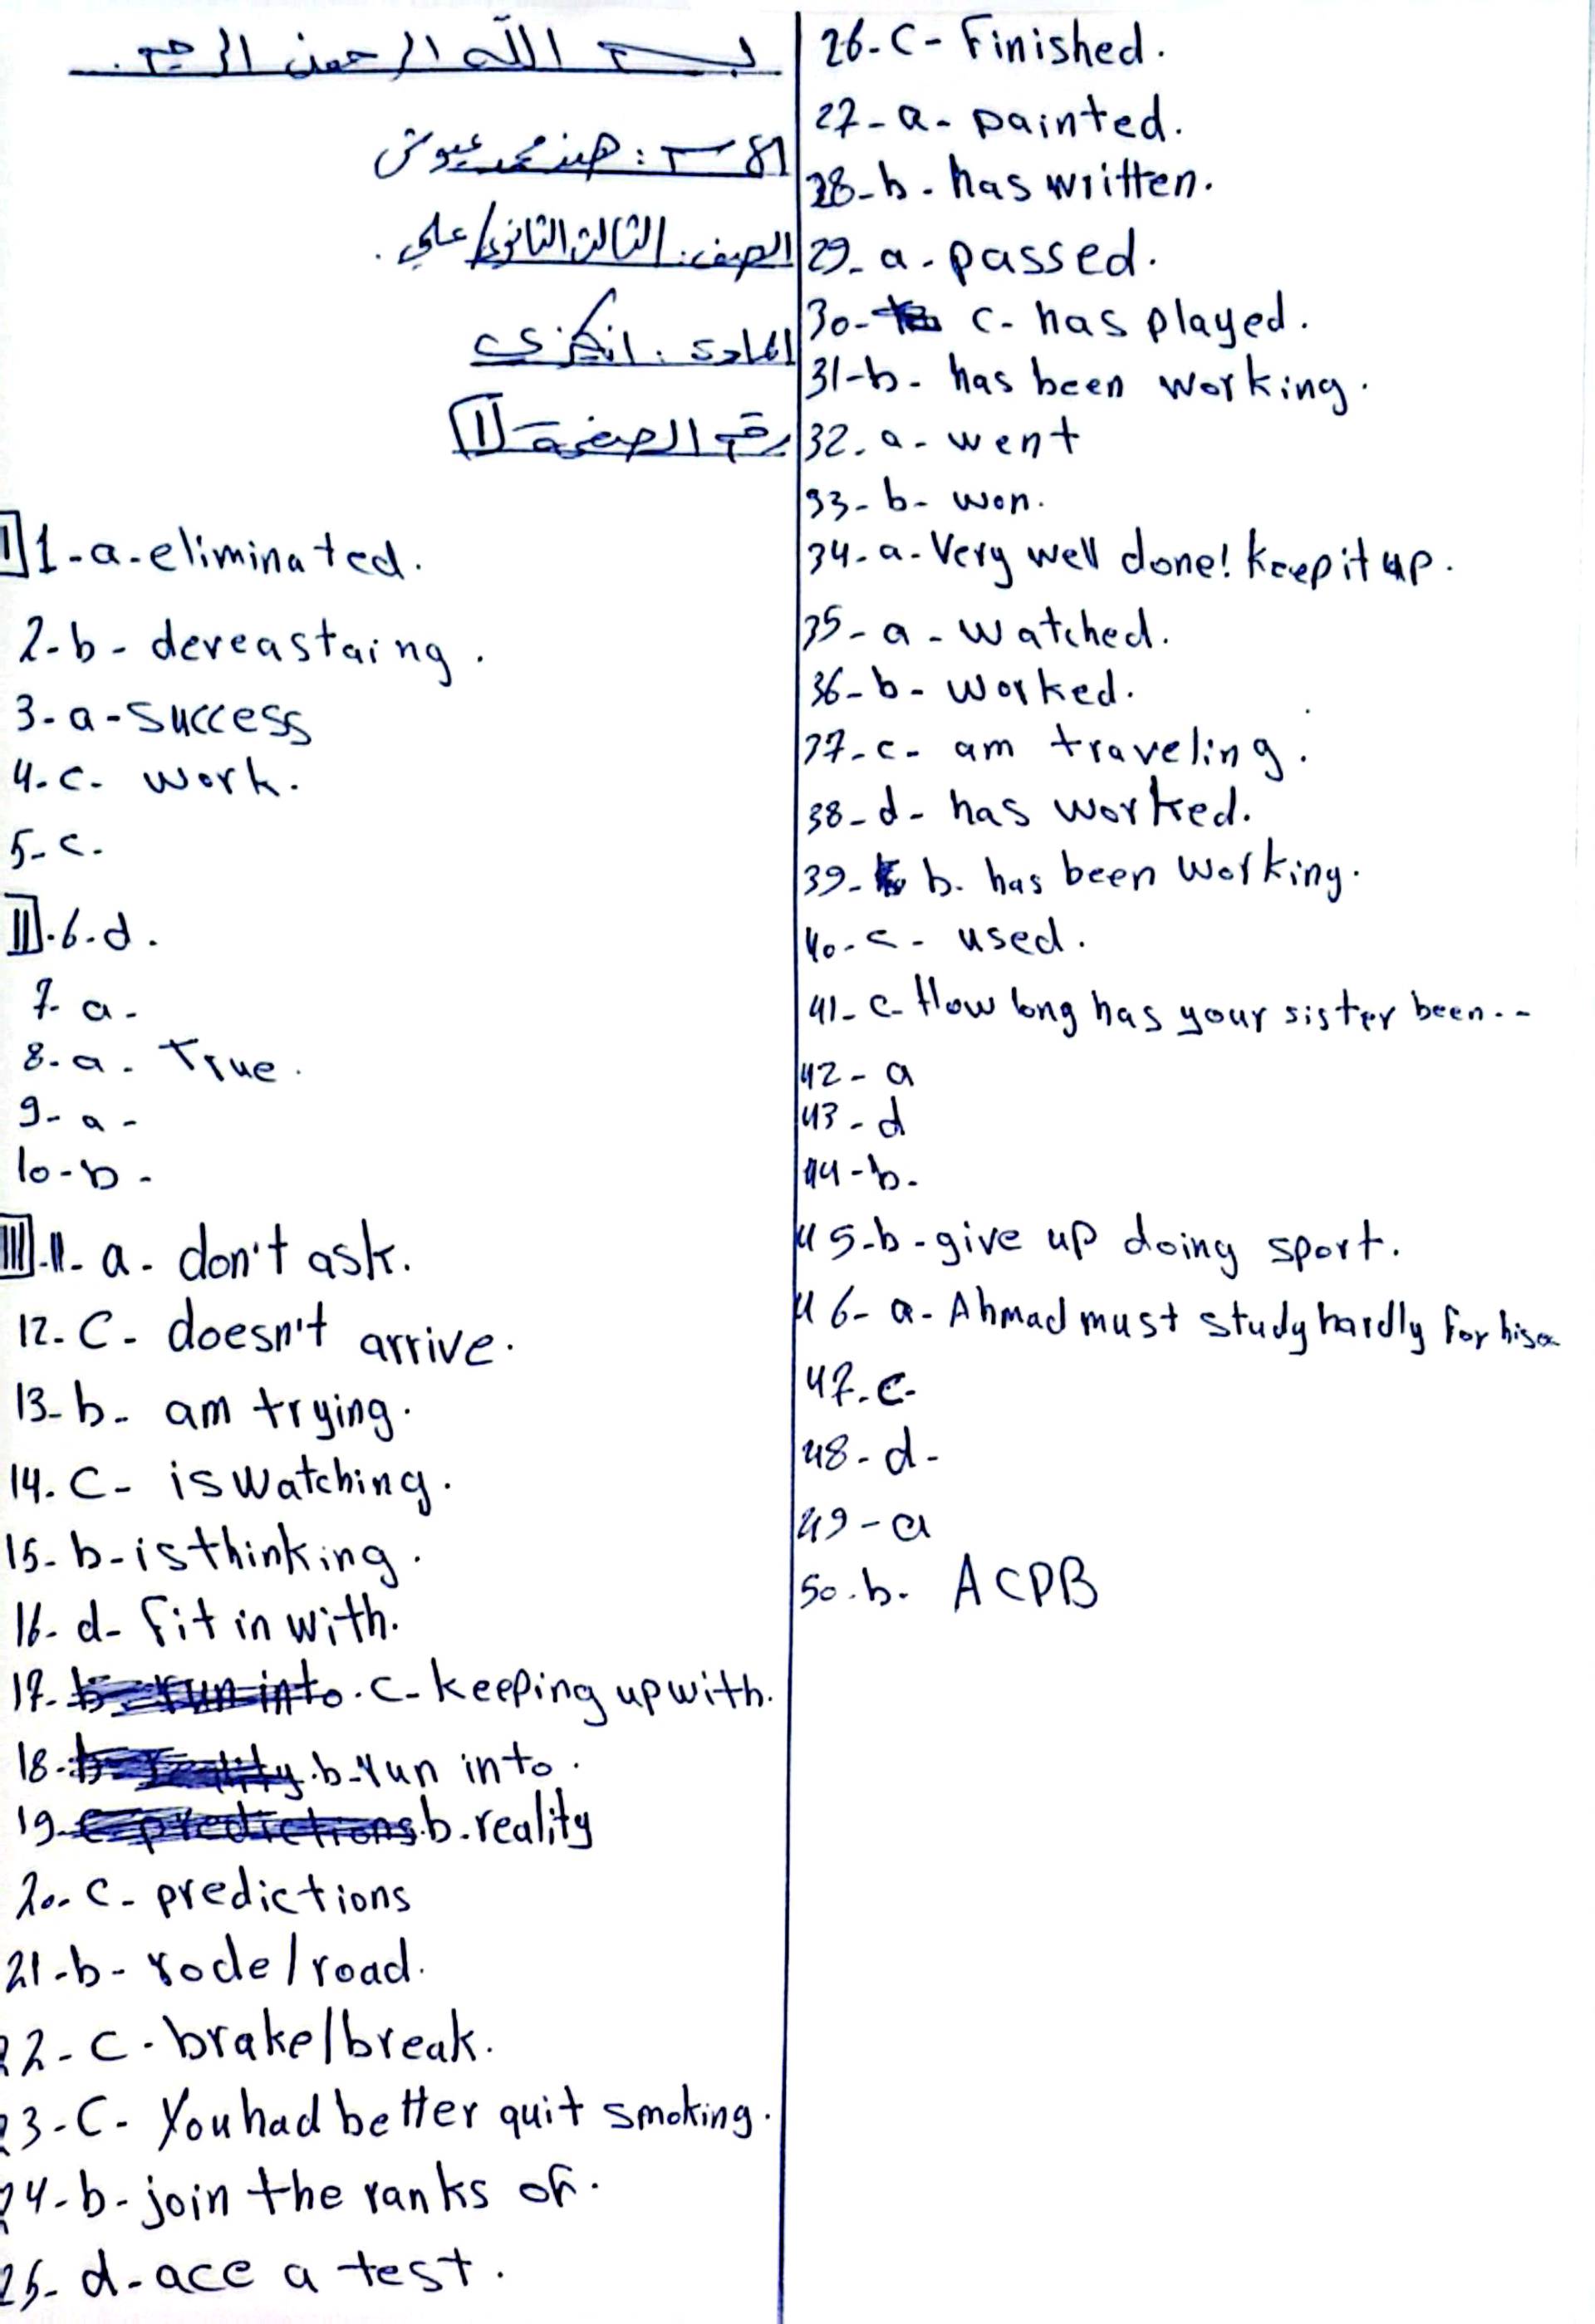 بسم الله الرحمن الرحيم.
الاسم: هند محمد عيوش
الصف: الثالث الثانوي/علمي.
المادة: انكليزي
رقم الصفحة 1
I 1-a-eliminated.
2-b- devreastaing.
3-a-success
4-c- work.
5-c-
II.6-d.
7-a-
8-a- True.
9-a-
10-b-
III.11-a- don't ask.
12-C- doesn't arrive.
13-b- am trying.
14-C- is watching.
15-b-is thinking.
16-d- fit in with.
17-b- run into. c- keeping up with.
18- b-run into.
19-c-predictions b-reality
20-c- predictions
21-b- rode/road.
22-C-brake/break.
23-C- You had better quit smoking.
24-b-join the ranks of.
25-d-ace a test.
26-C- Finished.
27-a- painted.
28-b- has written.
29-a-passed.
30- c- has played.
31-b- has been working.
32-a- went
33-b- won.
34-a-Very well done! keep it up.
35-a-watched.
36-b-worked.
37-c- am traveling.
38-d- has worked.
39- b. has been working.
40-c- used.
41-c-How long has your sister been--
42-a
43-d
44-b-
45-b-give up doing sport.
46-a-Ahmad must study hardly for his
47-c-
48-d-
49-a
50-b- ACDB